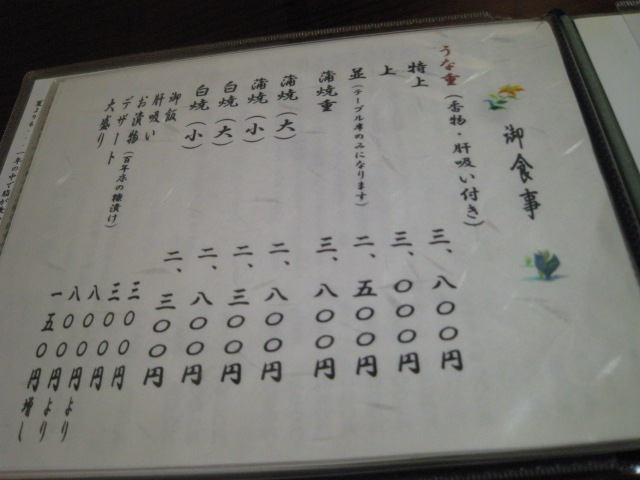 御食事
うな重(香物・肝吸い付き)
特上 三、八〇〇円
上 三、〇〇〇円
並(テーブル席のみになります) 二、五〇〇円
蒲焼重 三、八〇〇円
蒲焼(大) 二、八〇〇円
蒲焼(小) 二、三〇〇円
白焼(大) 二、八〇〇円
白焼(小) 二、三〇〇円
御飯 三〇〇円
肝吸い 三〇〇円
お漬物(百年床の糠漬け) 八〇〇円より
デザート 八〇〇円より
大盛り 一五〇円増し